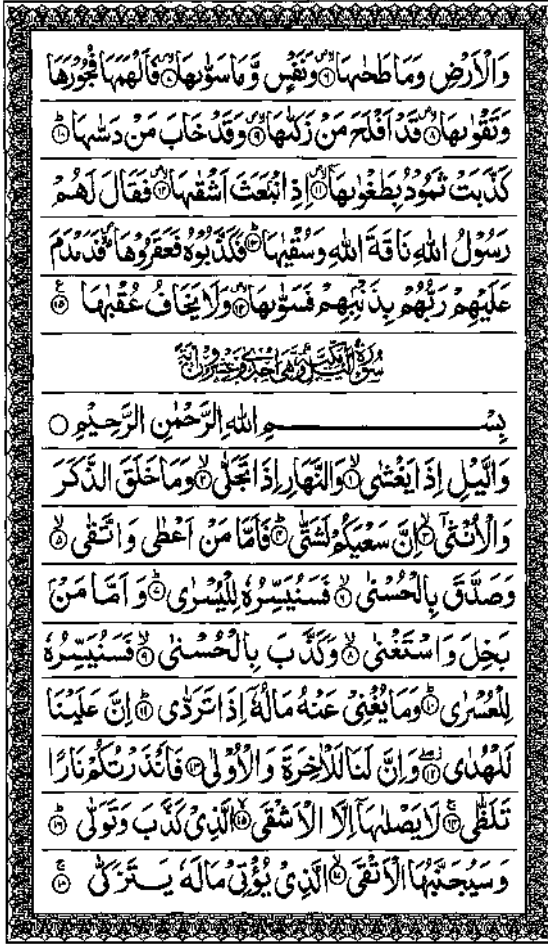 وَالْاَرْضِ وَمَا طَحٰىهَا ۙ۶ وَنَفْسٍ وَّمَا سَوّٰىهَا ۙ۷ فَاَلْهَمَهَا فُجُوْرَهَا
وَتَقْوٰىهَا ۙ۸ قَدْ اَفْلَحَ مَنْ زَكّٰىهَا ۙ۹ وَقَدْ خَابَ مَنْ دَسّٰىهَا ؕ۱۰
كَذَّبَتْ ثَمُوْدُ بِطَغْوٰىهَاۤ ۙ۱۱ اِذِ انْۢبَعَثَ اَشْقٰىهَا ۙ۱۲ فَقَالَ لَهُمْ
رَسُوْلُ اللّٰهِ نَاقَةَ اللّٰهِ وَسُقْيٰهَا ؕ۱۳ فَكَذَّبُوْهُ فَعَقَرُوْهَا فَدَمْدَمَ
عَلَيْهِمْ رَبُّهُمْ بِذَنْۢبِهِمْ فَسَوّٰىهَا ۙ۱۴ وَلَا يَخَافُ عُقْبٰهَا ۱۵
سُوْرَةُ الَّيْلِ مَكِّيَّةٌ وَّهِيَ اِحْدٰى وَعِشْرُوْنَ اٰيَةً
بِسْمِ اللّٰهِ الرَّحْمٰنِ الرَّحِيْمِ
وَالَّيْلِ اِذَا يَغْشٰى ۙ۱ وَالنَّهَارِ اِذَا تَجَلّٰى ۙ۲ وَمَا خَلَقَ الذَّكَرَ
وَالْاُنْثٰىۤ ۙ۳ اِنَّ سَعْيَكُمْ لَشَتّٰى ؕ۴ فَاَمَّا مَنْ اَعْطٰى وَاتَّقٰى ۙ۵
وَصَدَّقَ بِالْحُسْنٰى ۙ۶ فَسَنُيَسِّرُهٗ لِلْيُسْرٰى ؕ۷ وَاَمَّا مَنْۢ
بَخِلَ وَاسْتَغْنٰى ۙ۸ وَكَذَّبَ بِالْحُسْنٰى ۙ۹ فَسَنُيَسِّرُهٗ
لِلْعُسْرٰى ؕ۱۰ وَمَا يُغْنِيْ عَنْهُ مَالُهٗۤ اِذَا تَرَدّٰى ؕ۱۱ اِنَّ عَلَيْنَا
لَلْهُدٰى ۱۲ وَاِنَّ لَنَا لَلْاٰخِرَةَ وَالْاُوْلٰى ۱۳ فَاَنْذَرْتُكُمْ نَارًا
تَلَظّٰى ۱۴ لَا يَصْلٰىهَاۤ اِلَّا الْاَشْقَى ۙ۱۵ الَّذِيْ كَذَّبَ وَتَوَلّٰى ؕ۱۶
وَسَيُجَنَّبُهَا الْاَتْقَى ۙ۱۷ الَّذِيْ يُؤْتِيْ مَالَهٗ يَتَزَكّٰى ۱۸